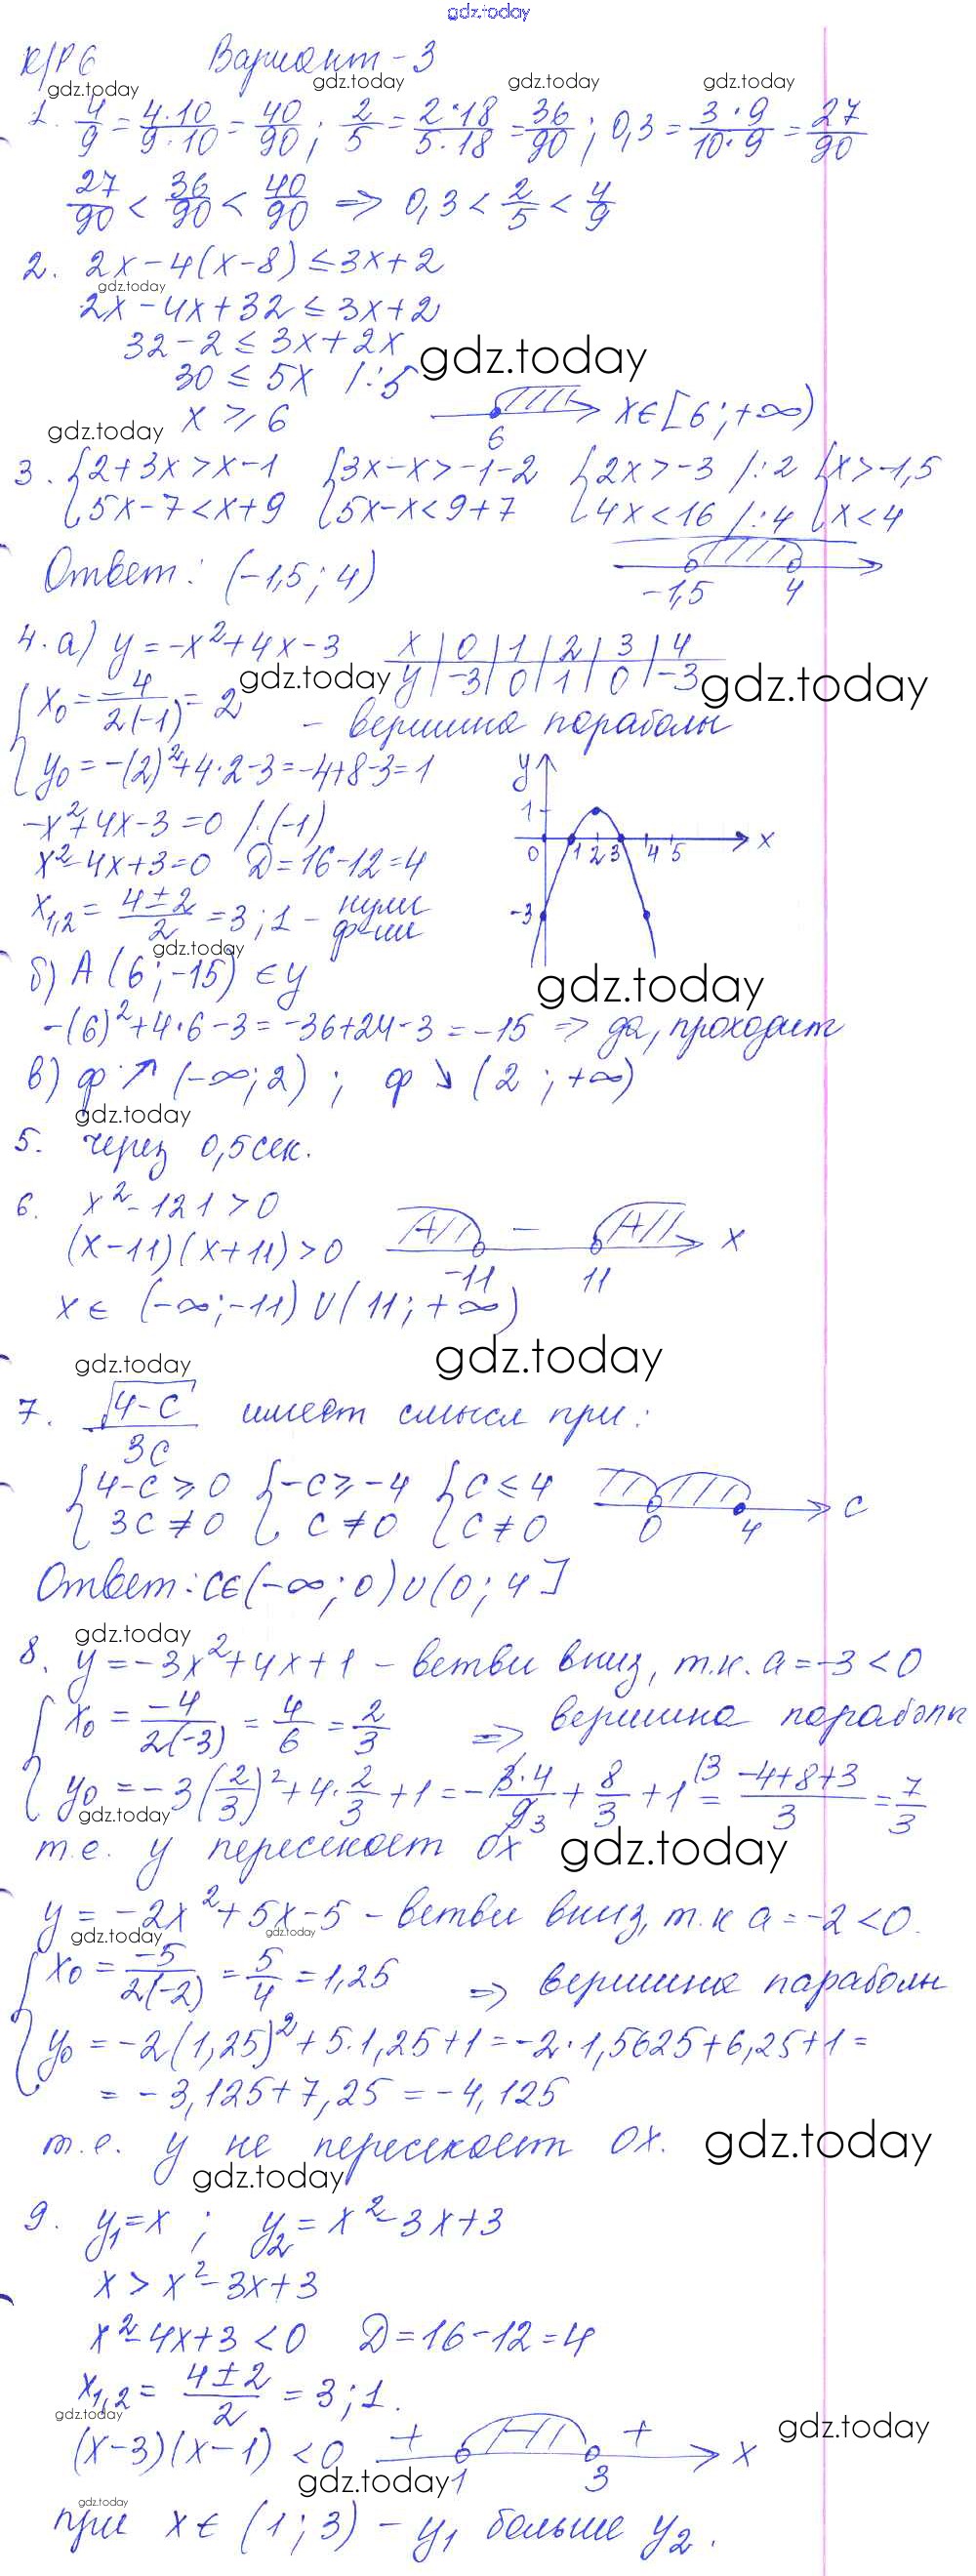 gdz.today
К/Р 6 Вариант-3
gdz.today gdz.today gdz.today gdz.today
1. 4/9 = 4·10/9·10 = 40/90 ; 2/5 = 2·18/5·18 = 36/90 ; 0,3 = 3·9/10·9 = 27/90
27/90 < 36/90 < 40/90 => 0,3 < 2/5 < 4/9
2. 2x-4(x-8) ≤ 3x+2
gdz.today
2x-4x+32 ≤ 3x+2
32-2 ≤ 3x+2x
gdz.today
30 ≤ 5x /:5
x ⩾ 6 6 x∈[6;+∞)
gdz.today
3. {2+3x>x-1 {3x-x>-1-2 {2x>-3 /:2 {x>-1,5
{5x-7<x+9 {5x-x<9+7 {4x<16 /:4 {x<4
Ответ: (-1,5; 4) -1,5 4
4. а) y = -x²+4x-3 x | 0 | 1 | 2 | 3 | 4
y | -3 | 0 | 1 | 0 | -3
gdz.today gdz.today
{x₀ = -4/2(-1) = 2 - вершина параболы
{y₀ = -(2)²+4·2-3=-4+8-3=1
y 1 0 1 2 3 4 5 x -3
-x²+4x-3=0 /·(-1)
x²-4x+3=0 D=16-12=4
x₁,₂ = 4±2/2 = 3;1 - нули ф-ии
gdz.today
б) A(6;-15) ∈ y
gdz.today
-(6)²+4·6-3=-36+24-3=-15 => да, проходит
в) ф ↗ (-∞;2) ; ф ↘ (2;+∞)
gdz.today
5. через 0,5 сек.
6. x²-121>0
(x-11)(x+11)>0 - -11 11 x
x∈ (-∞;-11)∪(11;+∞)
gdz.today gdz.today
7. √4-c/3c имеет смысл при:
{4-c⩾0 {-c⩾-4 {c≤4
{3c≠0 {c≠0 {c≠0 0 4 c
Ответ: c∈(-∞;0)∪(0;4]
gdz.today
8. y=-3x²+4x+1 - ветви вниз, т.к. a=-3<0
{x₀ = -4/2(-3) = 4/6 = 2/3 => вершина параболы
{y₀ = -3(2/3)²+4·2/3+1=-3·4/9 3+8/3+1 (3 = -4+8+3/3 = 7/3
gdz.today
т.е. y пересекает Ox
gdz.today
y = -2x²+5x-5 - ветви вниз, т.к a=-2<0.
gdz.today gdz.today
{x₀ = -5/2(-2) = 5/4 = 1,25 => вершина параболы
{y₀ = -2(1,25)²+5·1,25+1=-2·1,5625+6,25+1=
= -3,125+7,25 = -4,125
т.е. y не пересекает Ox.
gdz.today
gdz.today
9. y₁=x ; y₂=x²-3x+3
x > x²-3x+3
x²-4x+3<0 D=16-12=4
x₁,₂ = 4±2/2 = 3;1.
gdz.today gdz.today
(x-3)(x-1)<0 + - + 1 3 x
gdz.today
gdz.today
при x∈(1;3) - y₁ больше y₂.